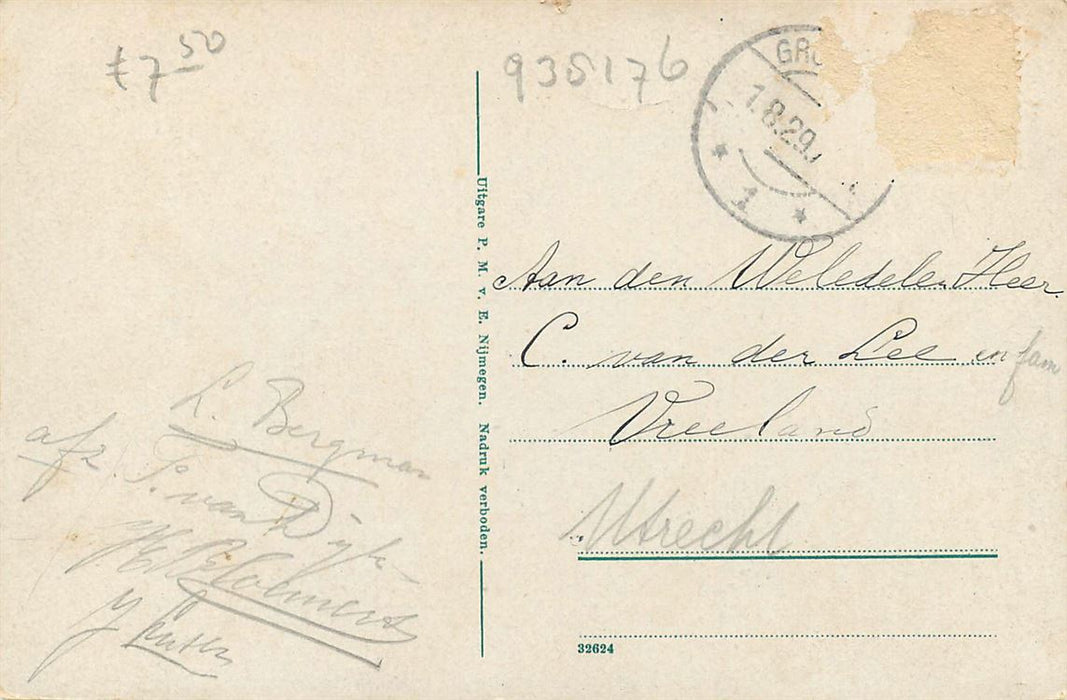 £7 50
935176
1.8.29.
1
Uitgare P. M. v. E. Nijmegen. Nadruk verboden.
Aan den Weledelen Heer.
C. van der Lee en fam
Vreeland
Utrecht
L. Bergman
afz. T. van Dijk
32624